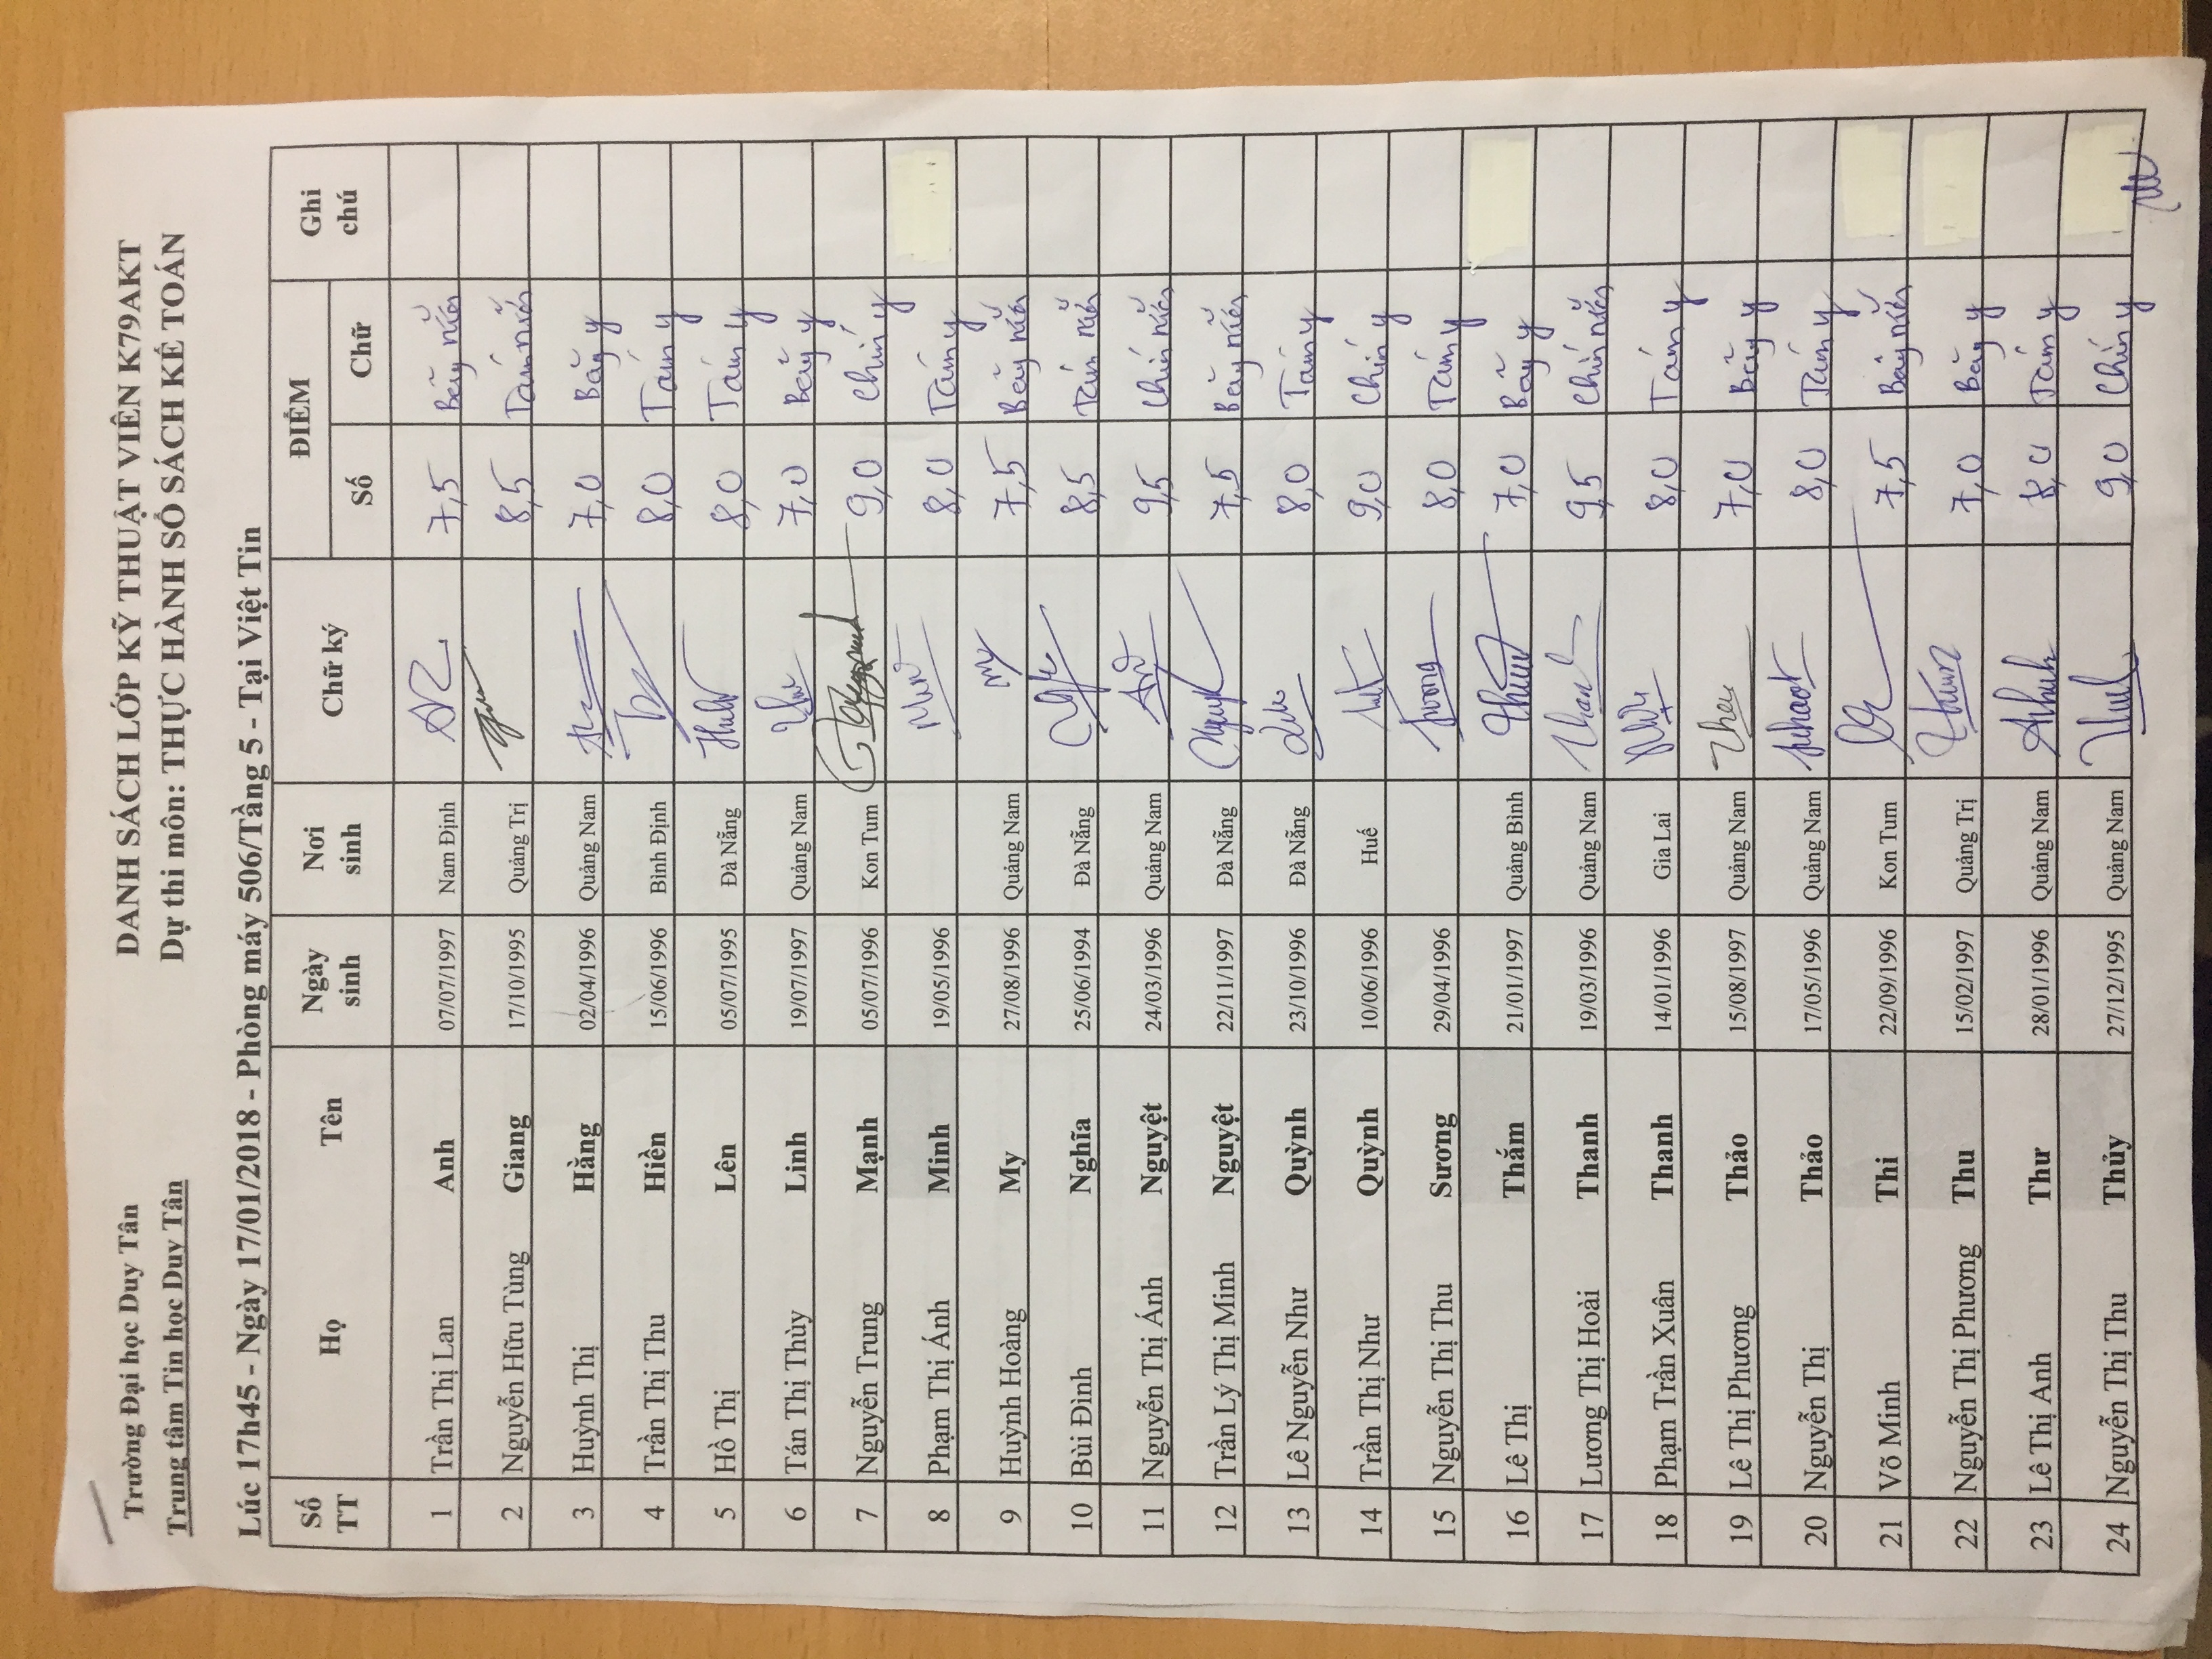 Trường Đại học Duy Tân
Trung tâm Tin học Duy Tân
DANH SÁCH LỚP KỸ THUẬT VIÊN K79AKT
Dự thi môn: THỰC HÀNH SỔ SÁCH KẾ TOÁN
Lúc 17h45 - Ngày 17/01/2018 - Phòng máy 506/Tầng 5 - Tại Việt Tin
Số TT Họ Tên Ngày sinh Nơi sinh Chữ ký ĐIỂM Ghi chú
Số Chữ
1 Trần Thị Lan Anh 07/07/1997 Nam Định 7,5 Bảy rưỡi
2 Nguyễn Hữu Tùng Giang 17/10/1995 Quảng Trị 8,5 Tám rưỡi
3 Huỳnh Thị Hằng 02/04/1996 Quảng Nam 7,0 Bảy y
4 Trần Thị Thu Hiền 15/06/1996 Bình Định 8,0 Tám y
5 Hồ Thị Lên 05/07/1995 Đà Nẵng 8,0 Tám y
6 Tán Thị Thùy Linh 19/07/1997 Quảng Nam 7,0 Bảy y
7 Nguyễn Trung Mạnh 05/07/1996 Kon Tum 9,0 Chín y
8 Phạm Thị Ánh Minh 19/05/1996 8,0 Tám y
9 Huỳnh Hoàng My 27/08/1996 Quảng Nam My 7,5 Bảy rưỡi
10 Bùi Đình Nghĩa 25/06/1994 Đà Nẵng 8,5 Tám rưỡi
11 Nguyễn Thị Ánh Nguyệt 24/03/1996 Quảng Nam 9,5 Chín rưỡi
12 Trần Lý Thị Minh Nguyệt 22/11/1997 Đà Nẵng 7,5 Bảy rưỡi
13 Lê Nguyễn Như Quỳnh 23/10/1996 Đà Nẵng 8,0 Tám y
14 Trần Thị Như Quỳnh 10/06/1996 Huế 9,0 Chín y
15 Nguyễn Thị Thu Sương 29/04/1996 8,0 Tám y
16 Lê Thị Thắm 21/01/1997 Quảng Bình 7,0 Bảy y
17 Lương Thị Hoài Thanh 19/03/1996 Quảng Nam 9,5 Chín rưỡi
18 Phạm Trần Xuân Thanh 14/01/1996 Gia Lai 8,0 Tám y
19 Lê Thị Phương Thảo 15/08/1997 Quảng Nam 7,0 Bảy y
20 Nguyễn Thị Thảo 17/05/1996 Quảng Nam 8,0 Tám y
21 Võ Minh Thi 22/09/1996 Kon Tum 7,5 Bảy rưỡi
22 Nguyễn Thị Phương Thu 15/02/1997 Quảng Trị 7,0 Bảy y
23 Lê Thị Anh Thư 28/01/1996 Quảng Nam 8,0 Tám y
24 Nguyễn Thị Thu Thủy 27/12/1995 Quảng Nam 9,0 Chín y